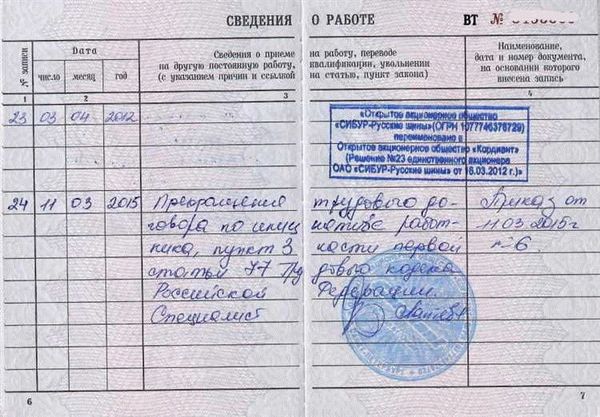 СВЕДЕНИЯ О РАБОТЕ
ВТ №
№ записи
Дата
Сведения о приеме на работу, переводе
на другую постоянную работу, квалификации, увольнении
(с указанием причин и ссылкой на статью, пункт закона)
Наименование,
дата и номер документа,
на основании которого
внесена запись
число месяц год
1 2 3 4
23 03 04 2012
«Открытое акционерное общество
«СИБУР-Русские шины» (ОГРН 1077746378729)
переименовано в
Открытое акционерное общество «Кордиант»
(Решение №23 единственного акционера
ОАО «СИБУР-Русские шины» от 16.03.2012 г.)»
24 11 03 2015 Прекращение трудового до- Приказ от
говора по инициативе работ- 11.03.2015г
ника, пункт 3 части первой №6.
статьи 77 Трудового кодекса
Российской Федерации.
Специалист
6
7